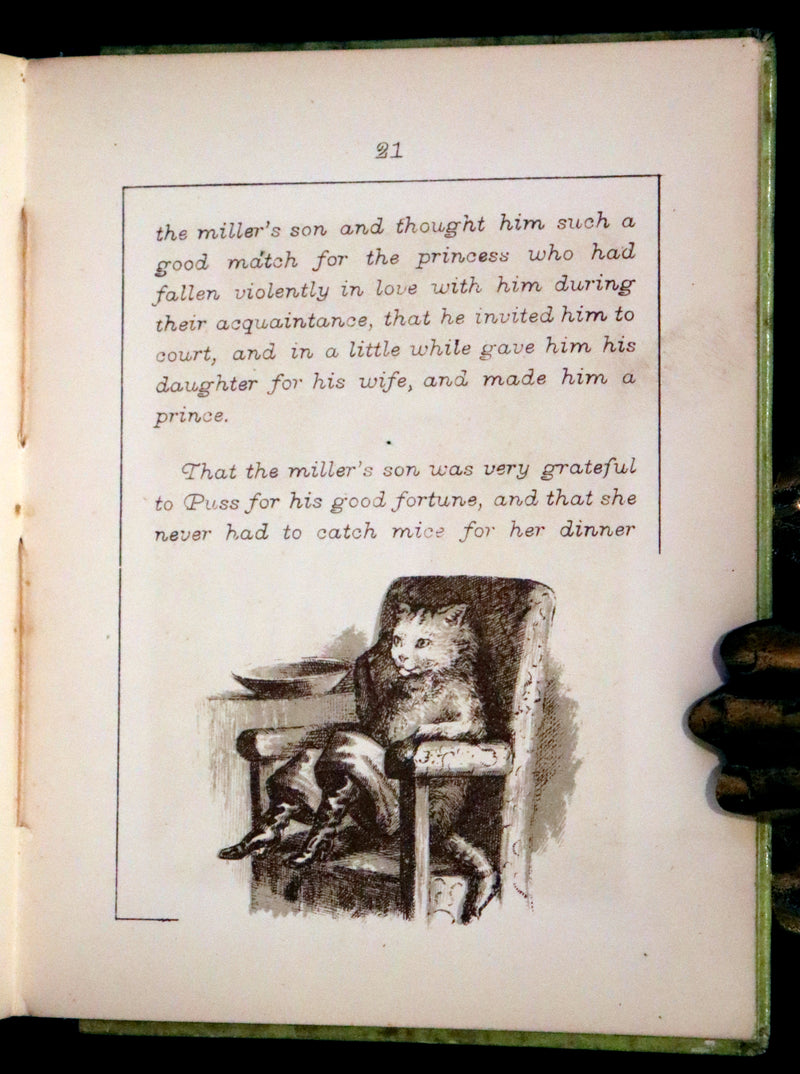 21
the miller's son and thought him such a
good match for the princess who had
fallen violently in love with him during
their acquaintance, that he invited him to
court, and in a little while gave him his
daughter for his wife, and made him a
prince.
That the miller's son was very grateful
to Puss for his good fortune, and that she
never had to catch mice for her dinner